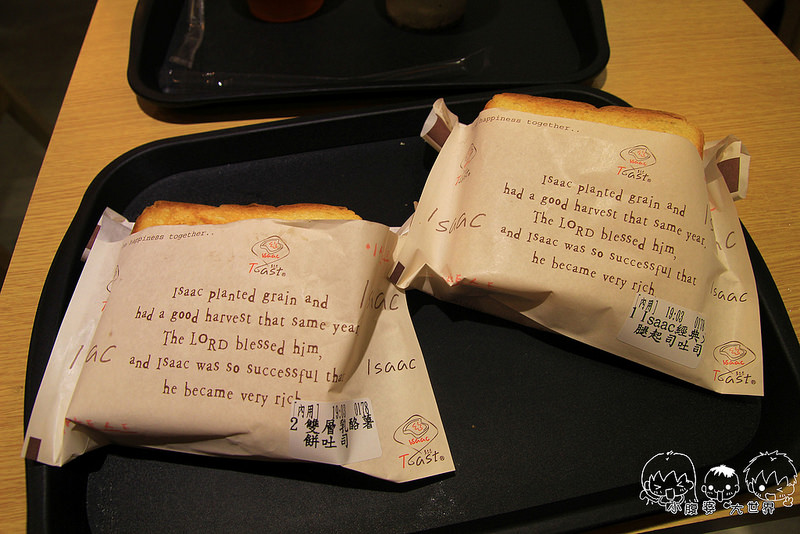 happiness together..
Isaac
Toast
Isaac planted grain and
had a good harvest that same year.
The LORD blessed him,
and Isaac was so successful that
he became very rich
Isaac
Isaac
[內用] 19:03 0178
1 Isaac經典火
腿起司吐司
Isaac
Toast®
happiness together..
Isaac
Toast
Isaac planted grain and
had a good harvest that same year.
The LORD blessed him,
and Isaac was so successful that
he became very rich
Isaac
Isaac
[內用] 19:03 0178
2 雙層乳酪薯
餅吐司
Isaac
Toast®
小腹婆 大世界